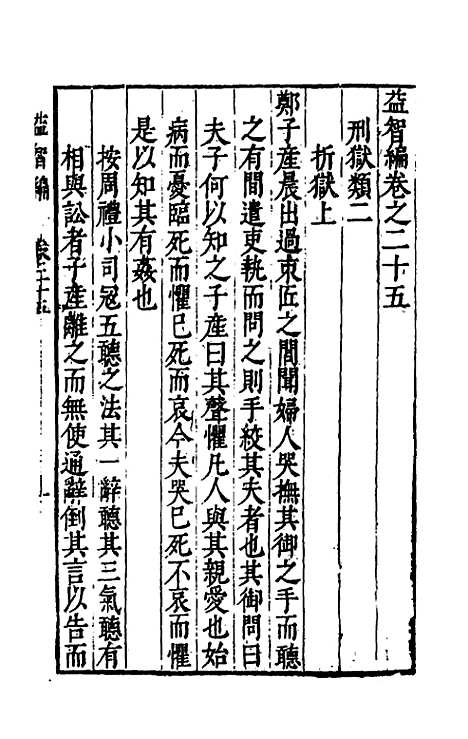 益智編卷之二十五
刑獄類二
折獄上
鄭子產晨出過東匠之閭聞婦人哭撫其御之手而聽
之有間遣吏執而問之則手絞其夫者也其御問曰
夫子何以知之子產曰其聲懼凡人與其親愛也始
病而憂臨死而懼已死而哀今夫哭已死不哀而懼
是以知其有姦也
按周禮小司冦五聽之法其一辭聽其三氣聽有
相與訟者子產離之而無使通辭倒其言以告而
益智編 卷二十五 一